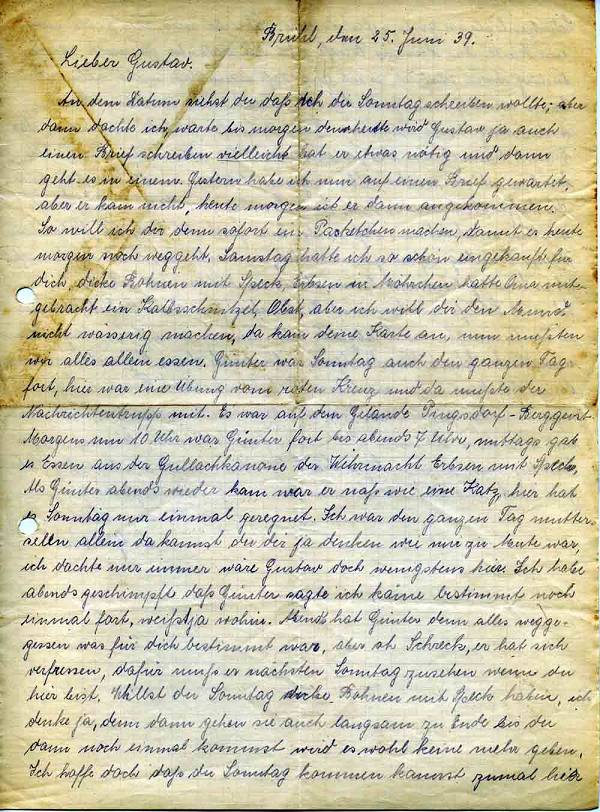 Brühl, den 25. Juni 39.
Lieber Gustav.
An dem Datum siehst du daß ich dir Sonntag schreiben wollte, aber
dann dachte ich, warte bis morgen denn heute wird Gustav ja auch
einen Brief schreiben vielleicht hat er etwas nötig und dann
geht es in einem. Gestern habe ich nun auf einen Brief gewartet,
aber er kam nicht, heute morgen ist er dann angekommen.
So will ich dir denn sofort ein Packetchen machen, damit er heute
morgen noch weggeht. Samstag hatte ich so schön eingekauft für
dich, dicke Bohnen mit Speck, Erbsen in Möhrchen hatte mit-
gebracht ein Kalbsschnitzel, Obst, aber ich will dir den Mund
nicht wässerig machen, da kam deine Karte an, nun mußten
wir alles allein essen. Günter war Sonntag auch den ganzen Tag
fort, hier war eine Übung vom roten Kreuz und da mußte der
Nachrichtentrupp mit. Es war auf dem Gelände Pingsdorf-Berggeist.
Morgens um 10 Uhr war Günter fort bis abends 7 Uhr, mittags gab
es Essen aus der Gullachkanone der Wehrmacht Erbsen mit Speck.
Als Günter abends wieder kam war er naß wie eine Katz, hier hat
es Sonntag nur einmal geregnet. Ich war den ganzen Tag mutter-
selen allein da kannst du dir ja denken wie mir zu Mute war,
ich dachte nur immer wäre Gustav doch wenigstens hier. Ich habe
abends geschimpft daß Günter sagte ich keine bestimmt noch
einmal fort, weißt ja wohin. Abends hat Günter denn alles wegge-
gessen was für dich bestimmt war, aber oh Schreck, er hat sich
verfressen, dafür muß er nächsten Sonntag zusehen wenn du
hier bist. Willst du Sonntag dicke Bohnen mit Speck haben, ich
denke ja, denn dann gehen sie auch langsam zu Ende bis du
dann noch einmal kommst wird es wohl keine mehr geben.
Ich hoffe doch daß du Sonntag kommen kannst zumal hier